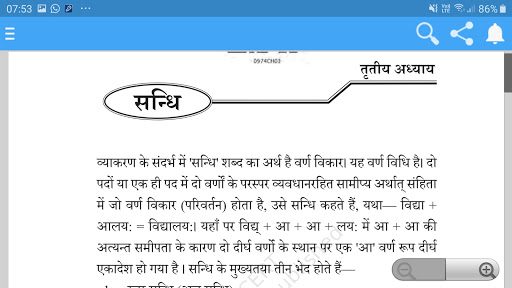 07:53
86%
0974CH03
तृतीय अध्याय
सन्धि
व्याकरण के संदर्भ में 'सन्धि' शब्द का अर्थ है वर्ण विकार। यह वर्ण विधि है। दो
पदों या एक ही पद में दो वर्णों के परस्पर व्यवधानरहित सामीप्य अर्थात् संहिता
में जो वर्ण विकार (परिवर्तन) होता है, उसे सन्धि कहते हैं, यथा— विद्या +
आलय: = विद्यालय:। यहाँ पर विद्य् + आ + आ + लय: में आ + आ की
अत्यन्त समीपता के कारण दो दीर्घ वर्णों के स्थान पर एक 'आ' वर्ण रूप दीर्घ
एकादेश हो गया है। सन्धि के मुख्यतया तीन भेद होते हैं—